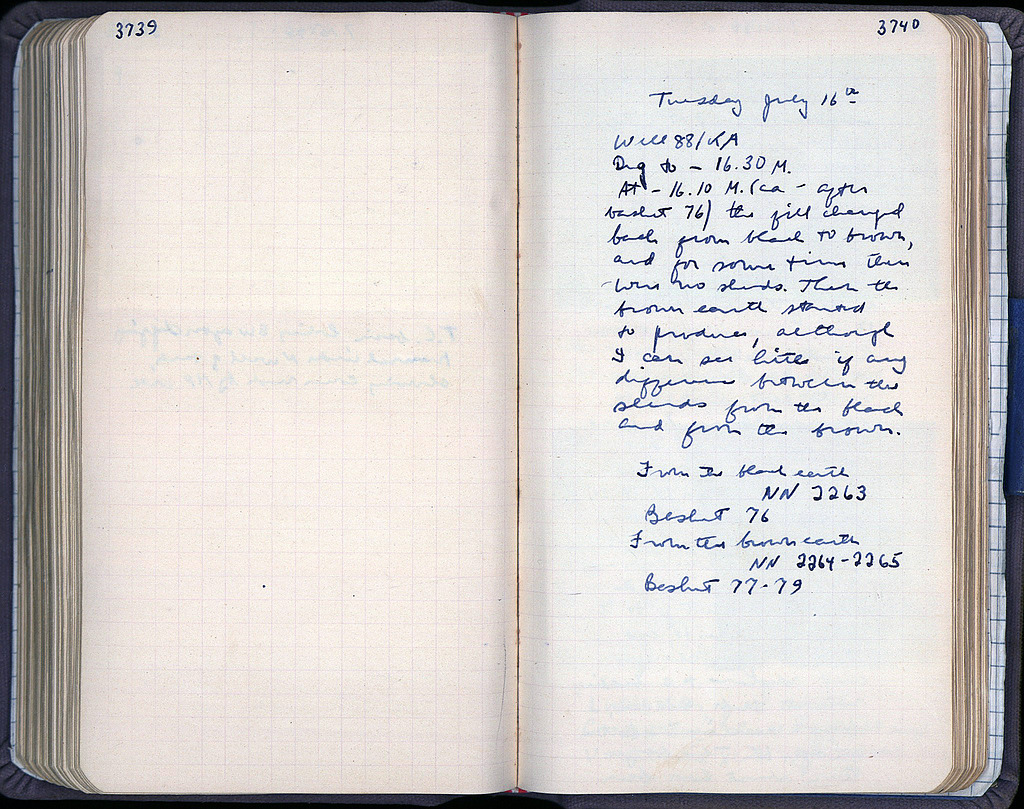 3739
3740
Tuesday July 16th
Well 88/KA
Dug to - 16.30 M.
At - 16.10 M. (ca - after
basket 76) the fill changed
back from black to brown,
and for some time there
were no sherds. Then the
brown earth started
to produce, although
I can see little if any
difference between the
sherds from the black
and from the brown.
From the black earth
NN 2263
Basket 76
From the brown earth
NN 2264-2265
Basket 77-79